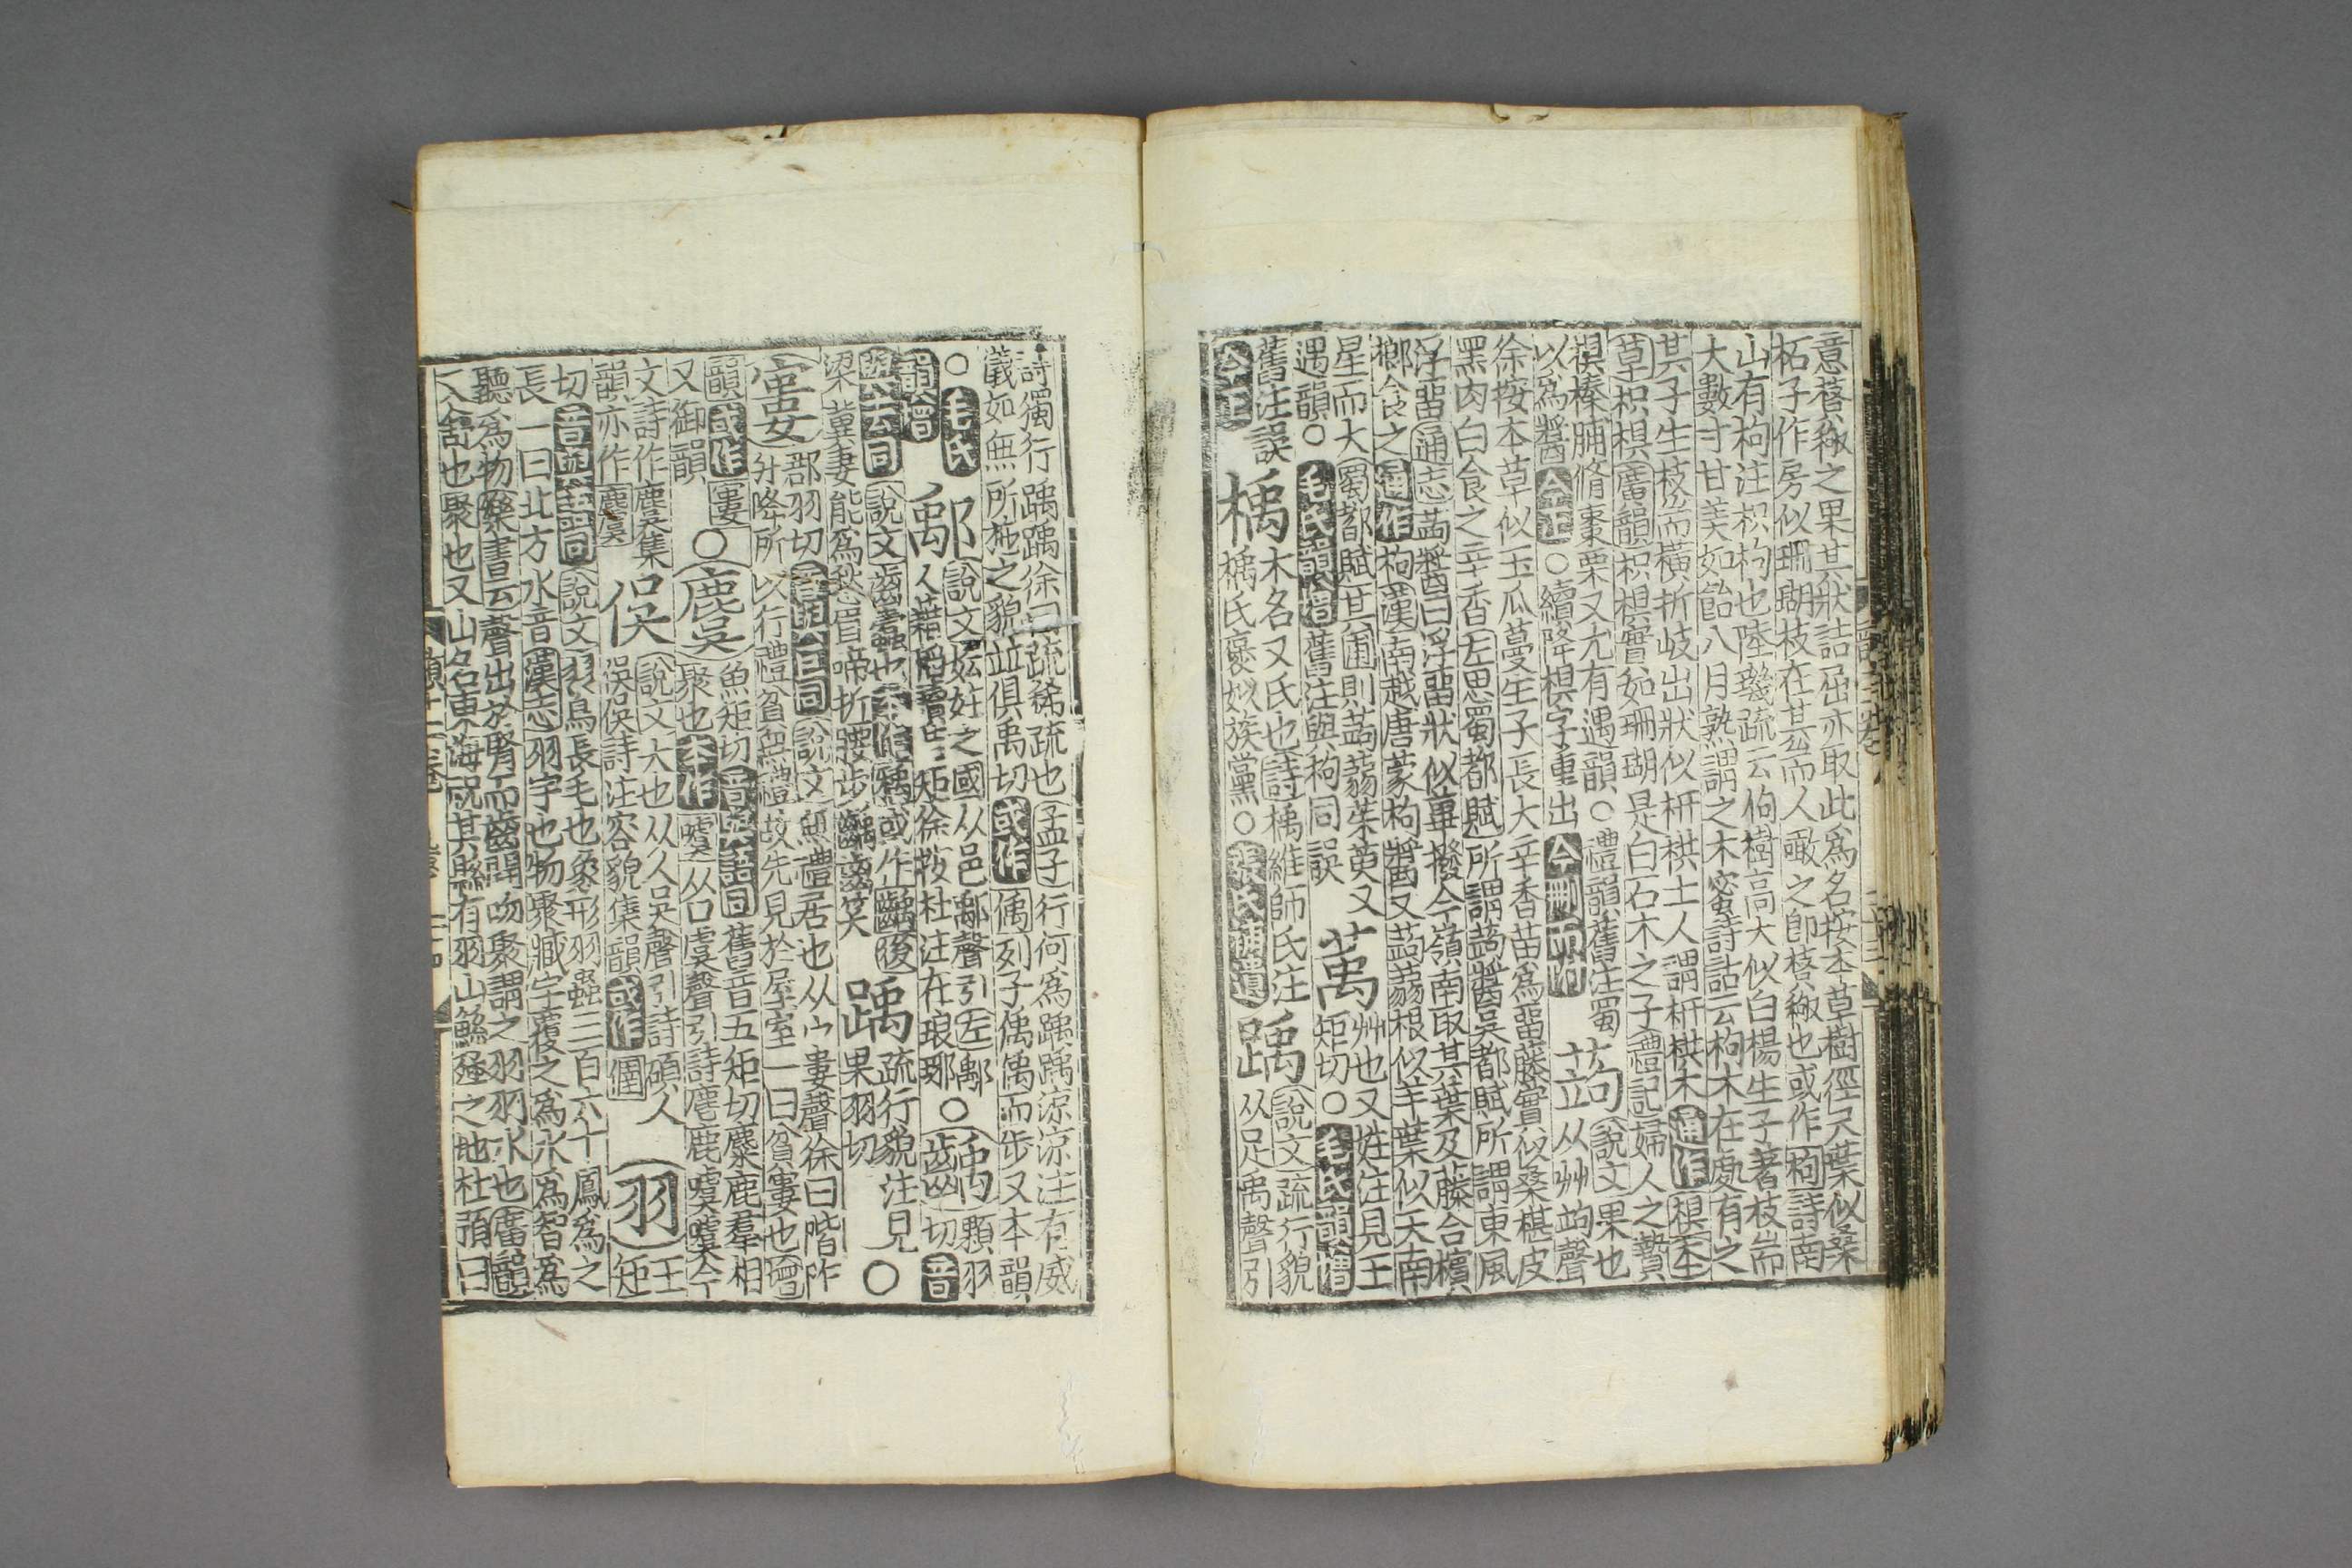 意䅩𥠻之果其狀詰屈亦取此爲名按本草樹徑尺葉似桑
柘子作房似珊瑚枝在其耑而人噉之即䅩𥠻也或作枸詩南
山有枸注枳枸也陸璣疏云枸樹高大似白楊生子著枝耑
大數寸甘美如飴八月熟謂之木蜜詩詁云枸木在處有之
其子生枝耑而橫折岐出狀似枅栱土人謂枅栱木通作椇本
草枳椇廣韻枳椇實如珊瑚是白石木之子禮記婦人之贄
椇榛脯脩棗栗又尤有遇韻○禮韻舊注蜀
以爲醬今正○續降椇字重出今刪而附
蒟說文果也
从艸竘聲
徐按本草似王瓜蔓生子長大辛香苗爲畱藤實似桑椹皮
黑肉白食之辛香左思蜀都賦所謂蒟醬吳都賦所謂東風
浮畱通志蒟醬曰浮畱狀似蓽撥今嶺南取其葉及藤合檳
榔食之通作枸漢南越唐蒙枸醬又蒟蒻根似芋葉似天南
星而大蜀都賦其圃則蒟蒻茱萸又
遇韻○毛氏韻增舊注與枸同誤
萭艸也又姓注見王
矩切○毛氏韻增
舊注誤
今正
楀木名又氏也詩楀維師氏注
楀氏褒姒族黨○張氏補遺
踽說文疏行貌
从足禹聲引
詩獨行踽踽徐曰疏稀疏也孟子行何爲踽踽涼涼注有威
儀如無所施之貌並俱禹切或作偊列子偊偊而步又本韻
○毛氏
韻增
鄅說文妘姓之國从邑禹聲引左鄅
人藉稻讀曰矩徐按杜注在琅琊○
齲顆羽
切音
與去同說文齒蠹也本作㺊或作齲後
梁冀妻能爲愁眉啼折腰步齲齒笑
踽疏行貌注見
果羽切○
寠郡羽切音與巨同說文無禮居也从宀婁聲徐曰階阼
升降所以行禮貧無禮故先見於屋室一曰貧寠也增
韻或作窶
又御韻
○麌魚矩切音與語同舊音五矩切麋鹿羣相
聚也本作噳从口虞聲引詩麀鹿噳噳今
文詩作麌集
韻亦作麈
俁說文大也从人吳聲引詩碩人
俁俁詩注容貌集韻或作個
羽王
矩
切音與雨同說文羽鳥長毛也象形羽蟲三百六十鳳爲之
長一曰北方水音漢志羽宇也物聚臧宇覆之爲水爲智爲
聽爲物樂書云聲出於腎而齒開吻聚謂之羽羽水也廣韻
又舒也聚也又山名東海祝其縣有羽山鯀殛之地杜預曰